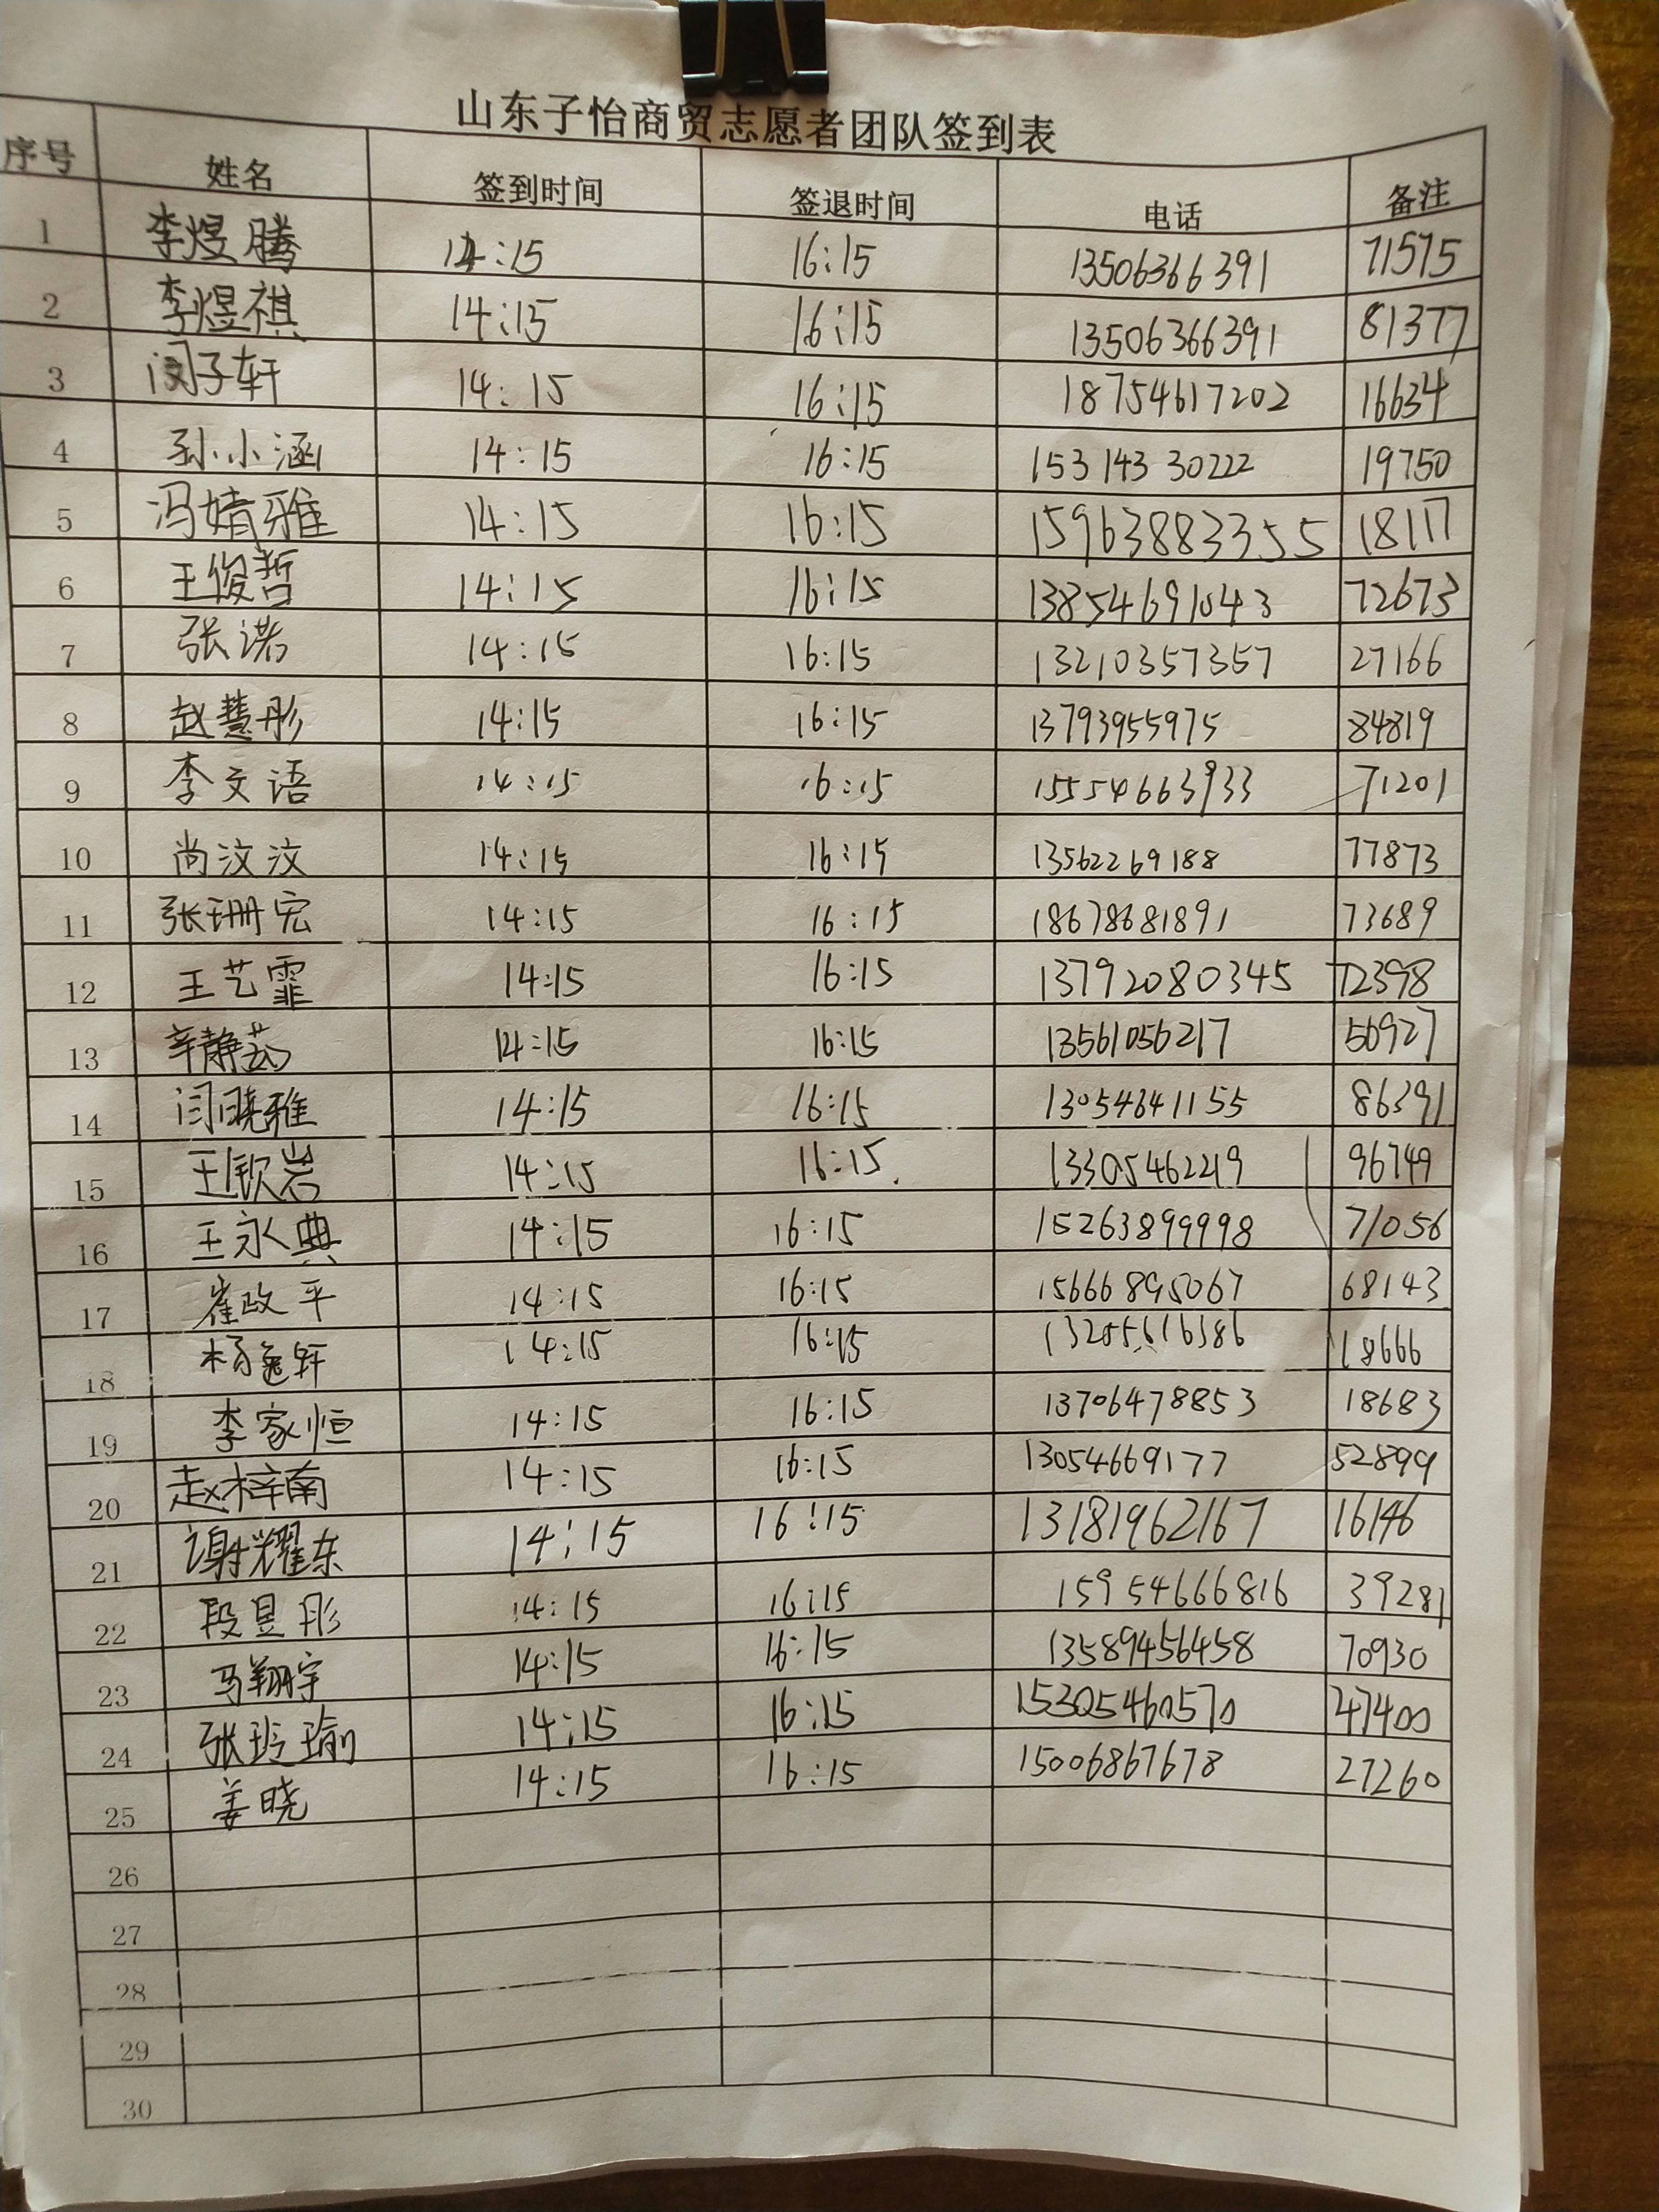 山东子怡商贸志愿者团队签到表
序号 姓名 签到时间 签退时间 电话 备注
1 李煜腾 14:15 16:15 13506366391 71575
2 李煜祺 14:15 16:15 13506366391 81377
3 闵子轩 14:15 16:15 18754617202 16634
4 孙小涵 14:15 16:15 15314330222 19750
5 冯婧雅 14:15 16:15 15963883355 18117
6 王俊哲 14:15 16:15 13854691043 72673
7 张诺 14:15 16:15 13210357357 27166
8 赵慧彤 14:15 16:15 13793955975 84819
9 李文语 14:15 16:15 15554663933 71201
10 尚汶汶 14:15 16:15 13562269188 77873
11 张珊宏 14:15 16:15 18678681891 73689
12 王艺霏 14:15 16:15 13792080345 72398
13 辛静茹 14:15 16:15 13561056217 56927
14 闫晓雅 14:15 16:15 13054641155 86391
15 王钦岩 14:15 16:15 13305462219 96749
16 王永典 14:15 16:15 15263899998 71056
17 崔政平 14:15 16:15 15666895067 68143
18 杨逸轩 14:15 16:15 18666
19 李家恒 14:15 16:15 13706478853 18683
20 赵梓南 14:15 16:15 13054669177 52899
21 谢耀东 14:15 16:15 13181962167 16146
22 段昱彤 14:15 16:15 15954666816 39281
23 马翔宇 14:15 16:15 13589456458 70930
24 张玲瑜 14:15 16:15 15305460570 47400
25 姜晓 14:15 16:15 15006867678 27260
26
27
28
29
30